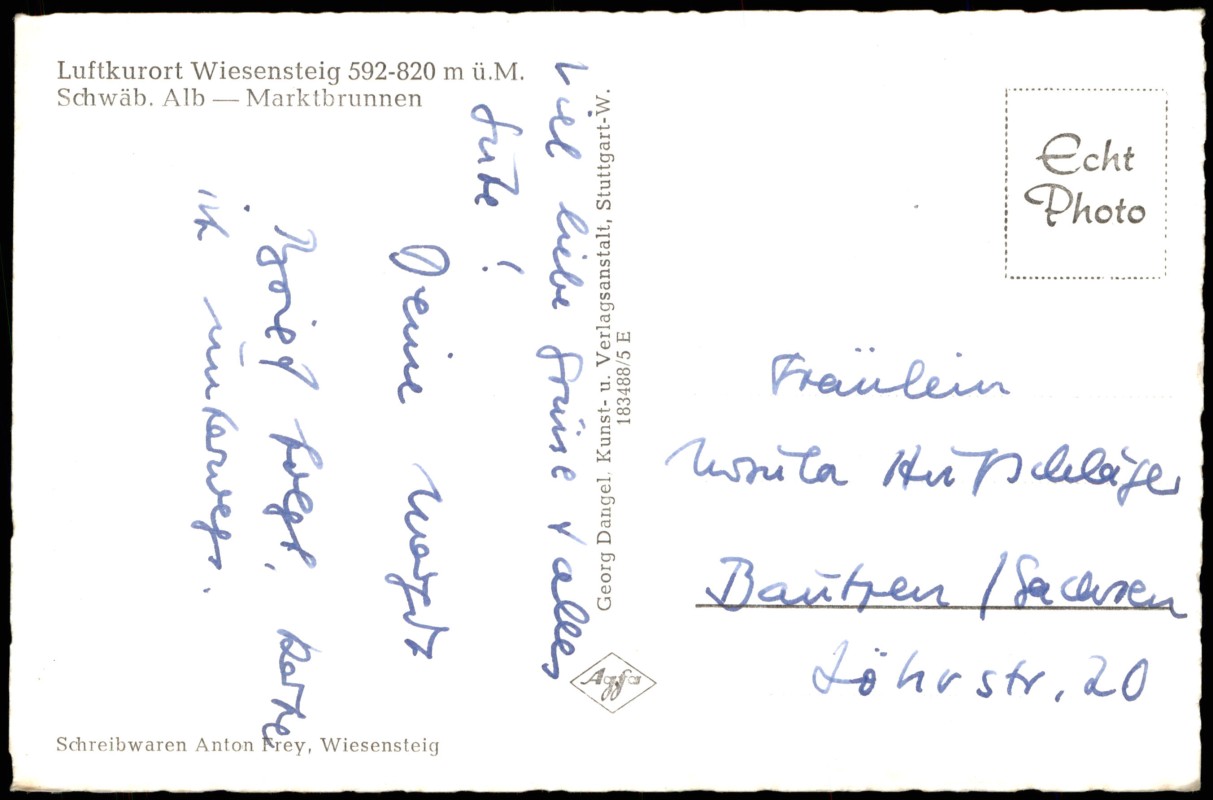 Luftkurort Wiesensteig 592-820 m ü.M.
Schwäb. Alb — Marktbrunnen
Viel liebe Grüsse + alles
Gute !
Deine Margit
Brief folgt. Karte
ist unterwegs.
Schreibwaren Anton Frey, Wiesensteig
Georg Dangel, Kunst- u. Verlagsanstalt, Stuttgart-W.
183488/5 E
Agfa
Echt
Photo
Fräulein
Ursula Hufschläger
Bautzen / Sachsen
Löhrstr. 20